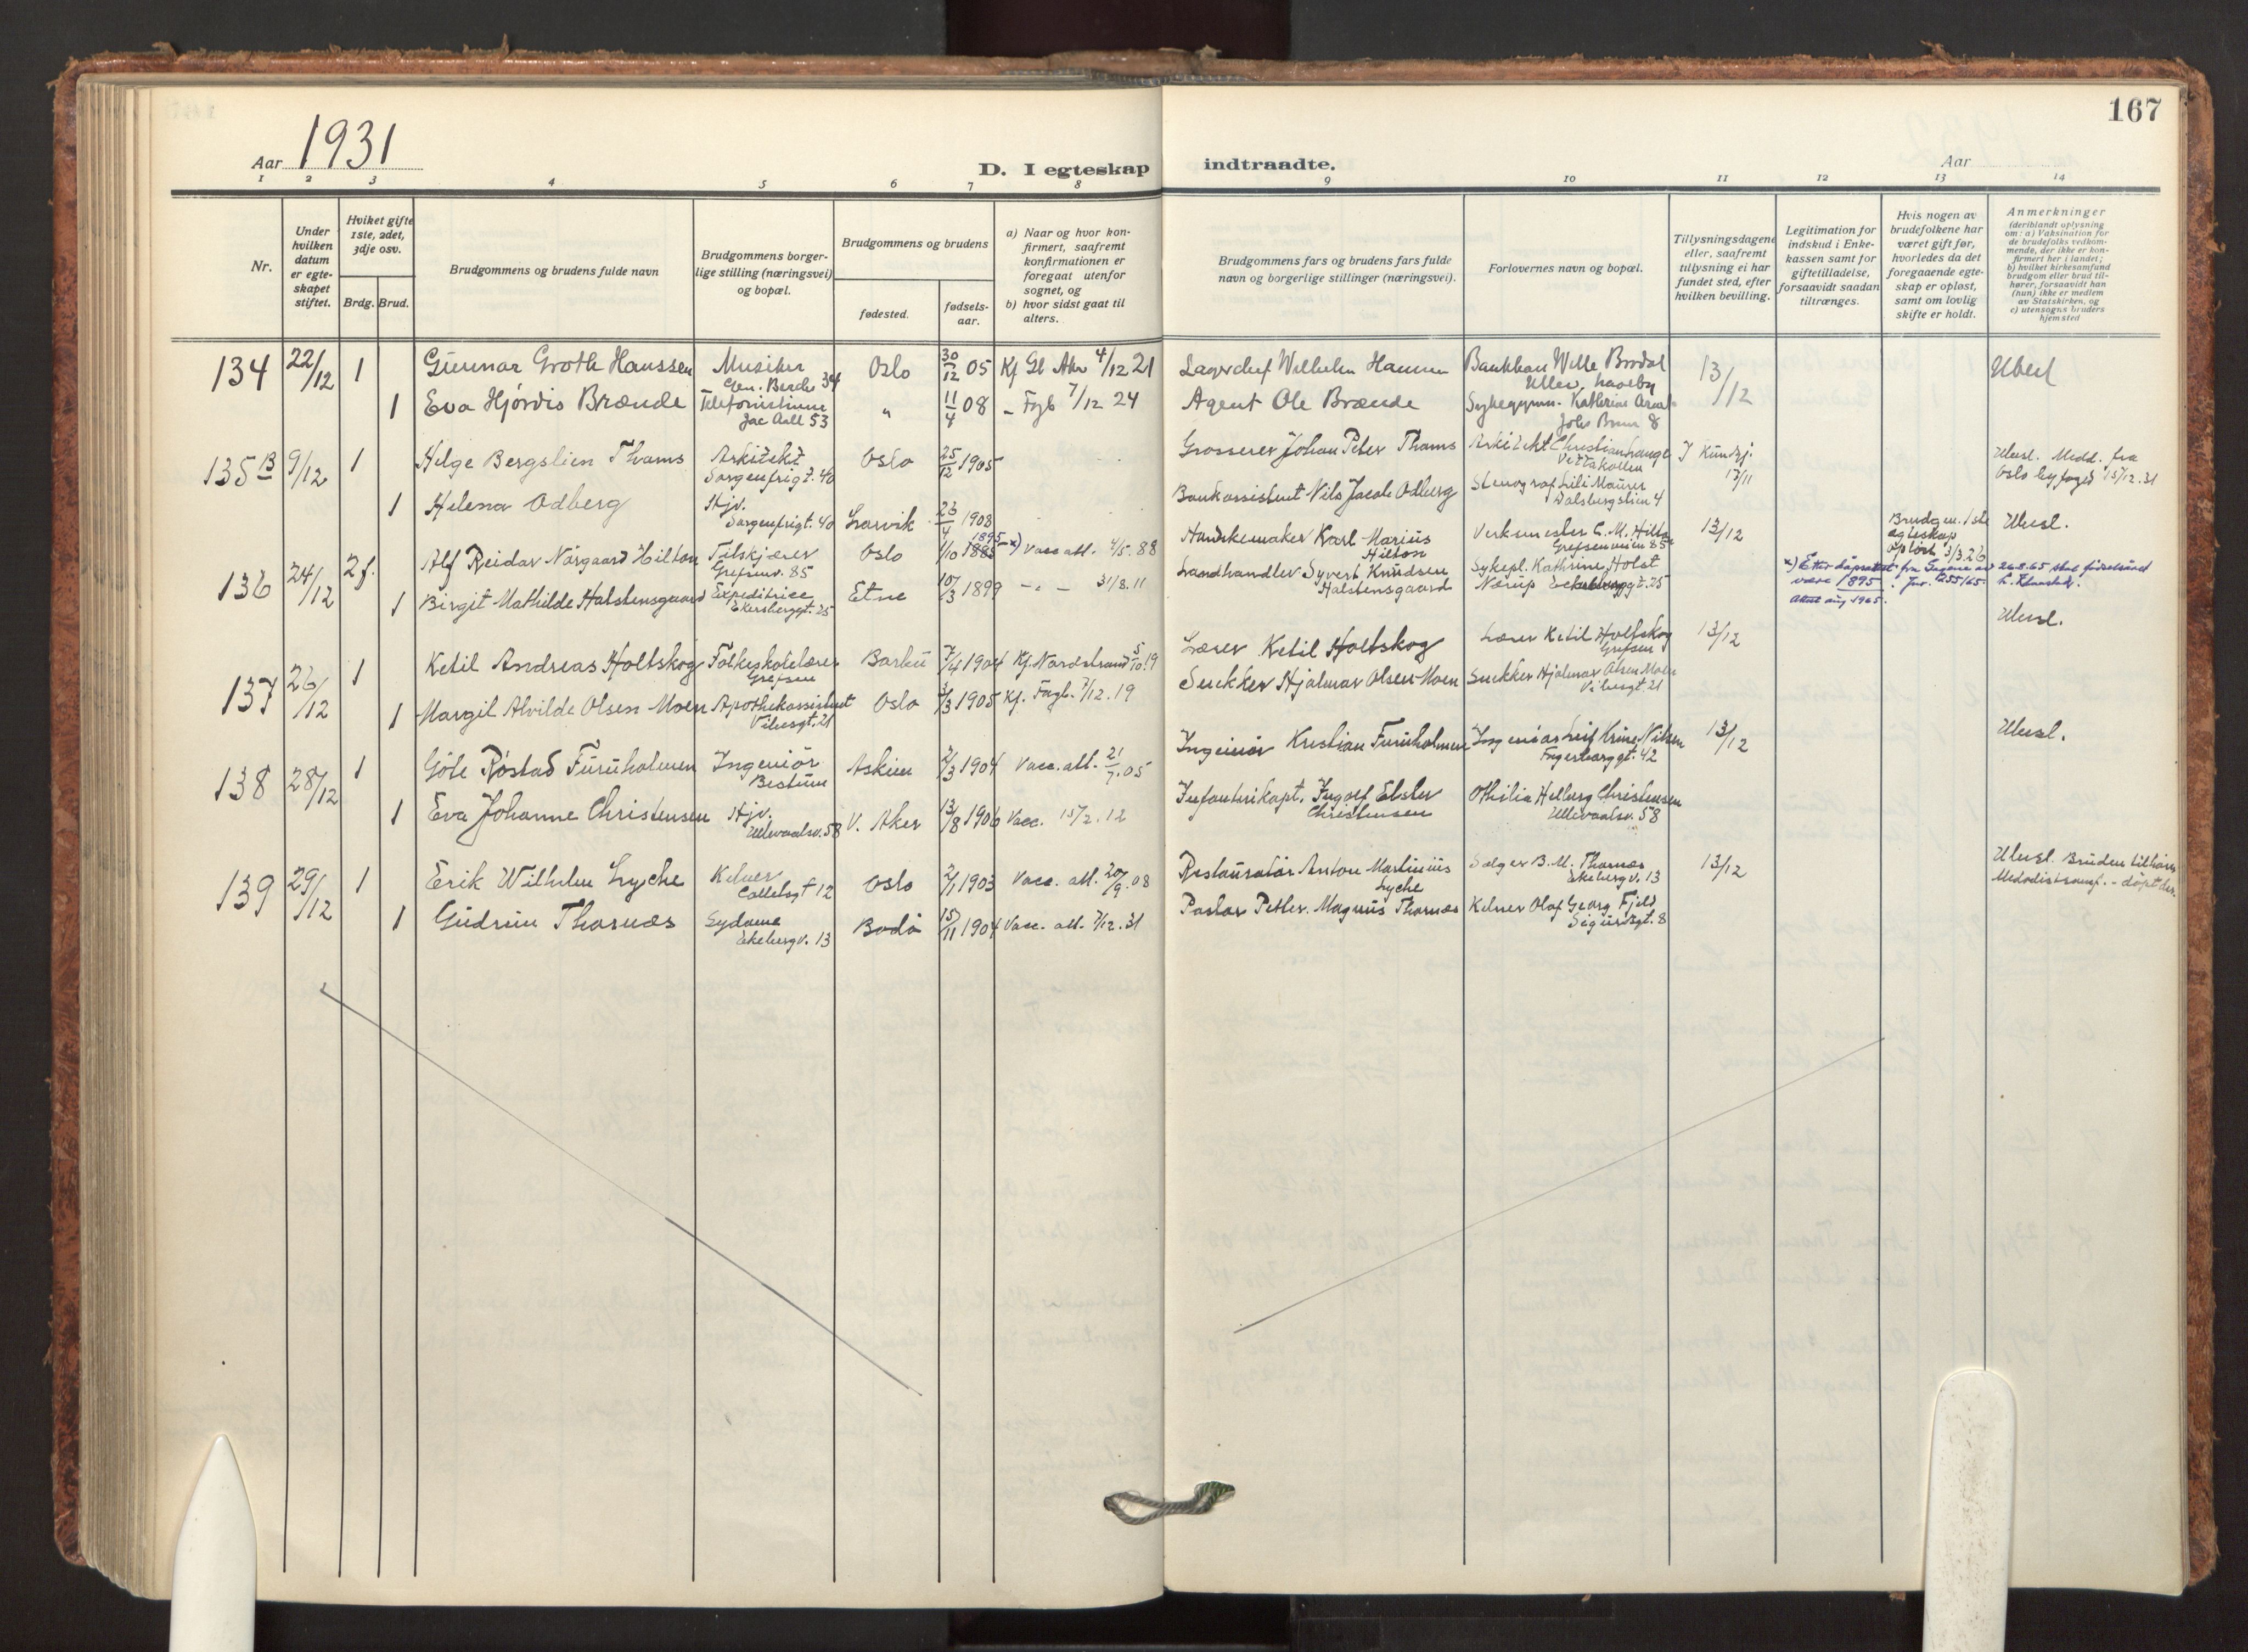 167
Aar 1931
D. I egteskap indtraadte.
Aar
1 2 3 4 5 6 7 8 9 10 11 12 13 14
Nr.
Under hvilken datum er egteskapet stiftet.
Hviket gifte 1ste, 2det, 3dje osv.
Brdg. Brud.
Brudgommens og brudens fulde navn
Brudgommens borgerlige stilling (næringsvei) og bopæl.
Brudgommens og brudens
fødested.
fødselsaar.
a) Naar og hvor konfirmert, saafremt konfirmationen er foregaat utenfor sognet, og
b) hvor sidst gaat til alters.
Brudgommens fars og brudens fars fulde navn og borgerlige stillinger (næringsvei).
Forlovernes navn og bopæl.
Tillysningsdagene eller, saafremt tillysning ei har fundet sted, efter hvilken bevilling.
Legitimation for indskud i Enkekassen samt for giftetilladelse, forsaavidt saadan tiltrænges.
Hvis nogen av brudefolkene har været gift før, hvorledes da det foregaaende egteskap er opløst, samt om lovlig skifte er holdt.
Anmerkninger (deriblandt oplysning om: a) Vaksination for de brudefolks vedkommende, der ikke er konfirmert her i landet; b) hvilket kirkesamfund brudgom eller brud tilhører, forsaavidt han (hun) ikke er medlem av Statskirken, og c) utensogns bruders hjemsted
134 22/12 1 Gunnar Groth Hanssen Musiker Gen. Berchs 34 Oslo 30/12 05 Kf Gl Aker 4/12 21 Lagerchef Wilhelm Hansen 13/12
1 Eva Hjørdis Brænde Telefonistinne Jac Aall 53 " 11/4 08 - Fagb 7/12 24 Agent Ole Brænde
135 B 9/12 1 Helge Bergslien Thams Arkitekt Sorgenfrigt. 40 Oslo 25/12 1905 Grosserer Johan Peter Thams Arkitekt Christian Hauge Vettakollen Kundgj. 17/11 Ulusl. Medd. fra Oslo byfoged 15/12.31
1 Helena Odberg Hjv. Sorgenfrigt. 40 Larvik 26/4 1908 Bankassistent Nils Jacob Odberg Stenograf Lili Maurer Dalsbergstien 4
136 24/12 2 f. Alf Reidar Nørgaard Hilton Tilskjærer Grefsenv. 85 Oslo 1/10 1885 1895 x) Vacc att. 4/5. 88 Hanskemaker Karl Marius Hilton Verksmester C. M. Hilton Grefsenveien 85 13/12 Brudgm. 1ste egteskap opløst 3/3.26 Ulusl.
1 Birgit Mathilde Halstensgaard Expeditrice Ekersberggt. 25 Etne 10/3 1899 - " - 31/8.11 Landhandler Syvert Knudsen Halstensgaard Sykepl. Kathrine Holst Nærup Eckersberggt. 25
x) Etter dåpsattest fra Sagene av 26.8.65 skal fødselsåret være 1895. Jnr. 1255/65.
137 26/12 1 Ketil Andreas Holtskog Folkeskolelærer Grefsen Barbu 7/4 1904 Kf. Nordstrand 5/10.19 Lærer Ketil Holtskog Lærer Ketil Holtskog Grefsen 13/12 Ulusl.
1 Margit Alvilde Olsen Moen Apothekassistent Vibesgt. 21 Oslo 3/3 1905 Kf. Fagb. 7/12.19 Snekker Hjalmar Olsen Moen Snekker Hjalmar Olsen Moen Vibesgt. 21
138 28/12 1 Göte Røstad Furuholmen Ingeniør Bestum Askim 2/3 1904 Vacc. att. 21/7.05 Ingeniør Kristian Furuholmen Fagerborggt. 42 13/12 Ulusl.
1 Eva Johanne Christensen Hjv. Ullevaalsv. 58 V. Aker 13/8 1906 Vacc. 15/2.12 Infanterikapt. Ingolf Elster Christensen Othilia Helberg Christensen Ullevaalsv. 58
139 29/12 1 Erik Wilhelm Lyche Kelner Colletsgt 12 Oslo 2/1 1903 Vacc. att. 20/9.08 Restauratør Anton Martinius Lyche Sælger B. M. Thornæs Ekebergv. 13 13/12 Ulusl. Bruden tilhører Metodistsamf. - døpt der.
1 Gudrun Thornæs Sydame Ekebergv. 13 Bodø 15/11 1904 Vacc. att. 7/12.31 Pastor Petter Magnus Thornæs Kelner Olaf Georg Fjeld Sigurdsgt. 8